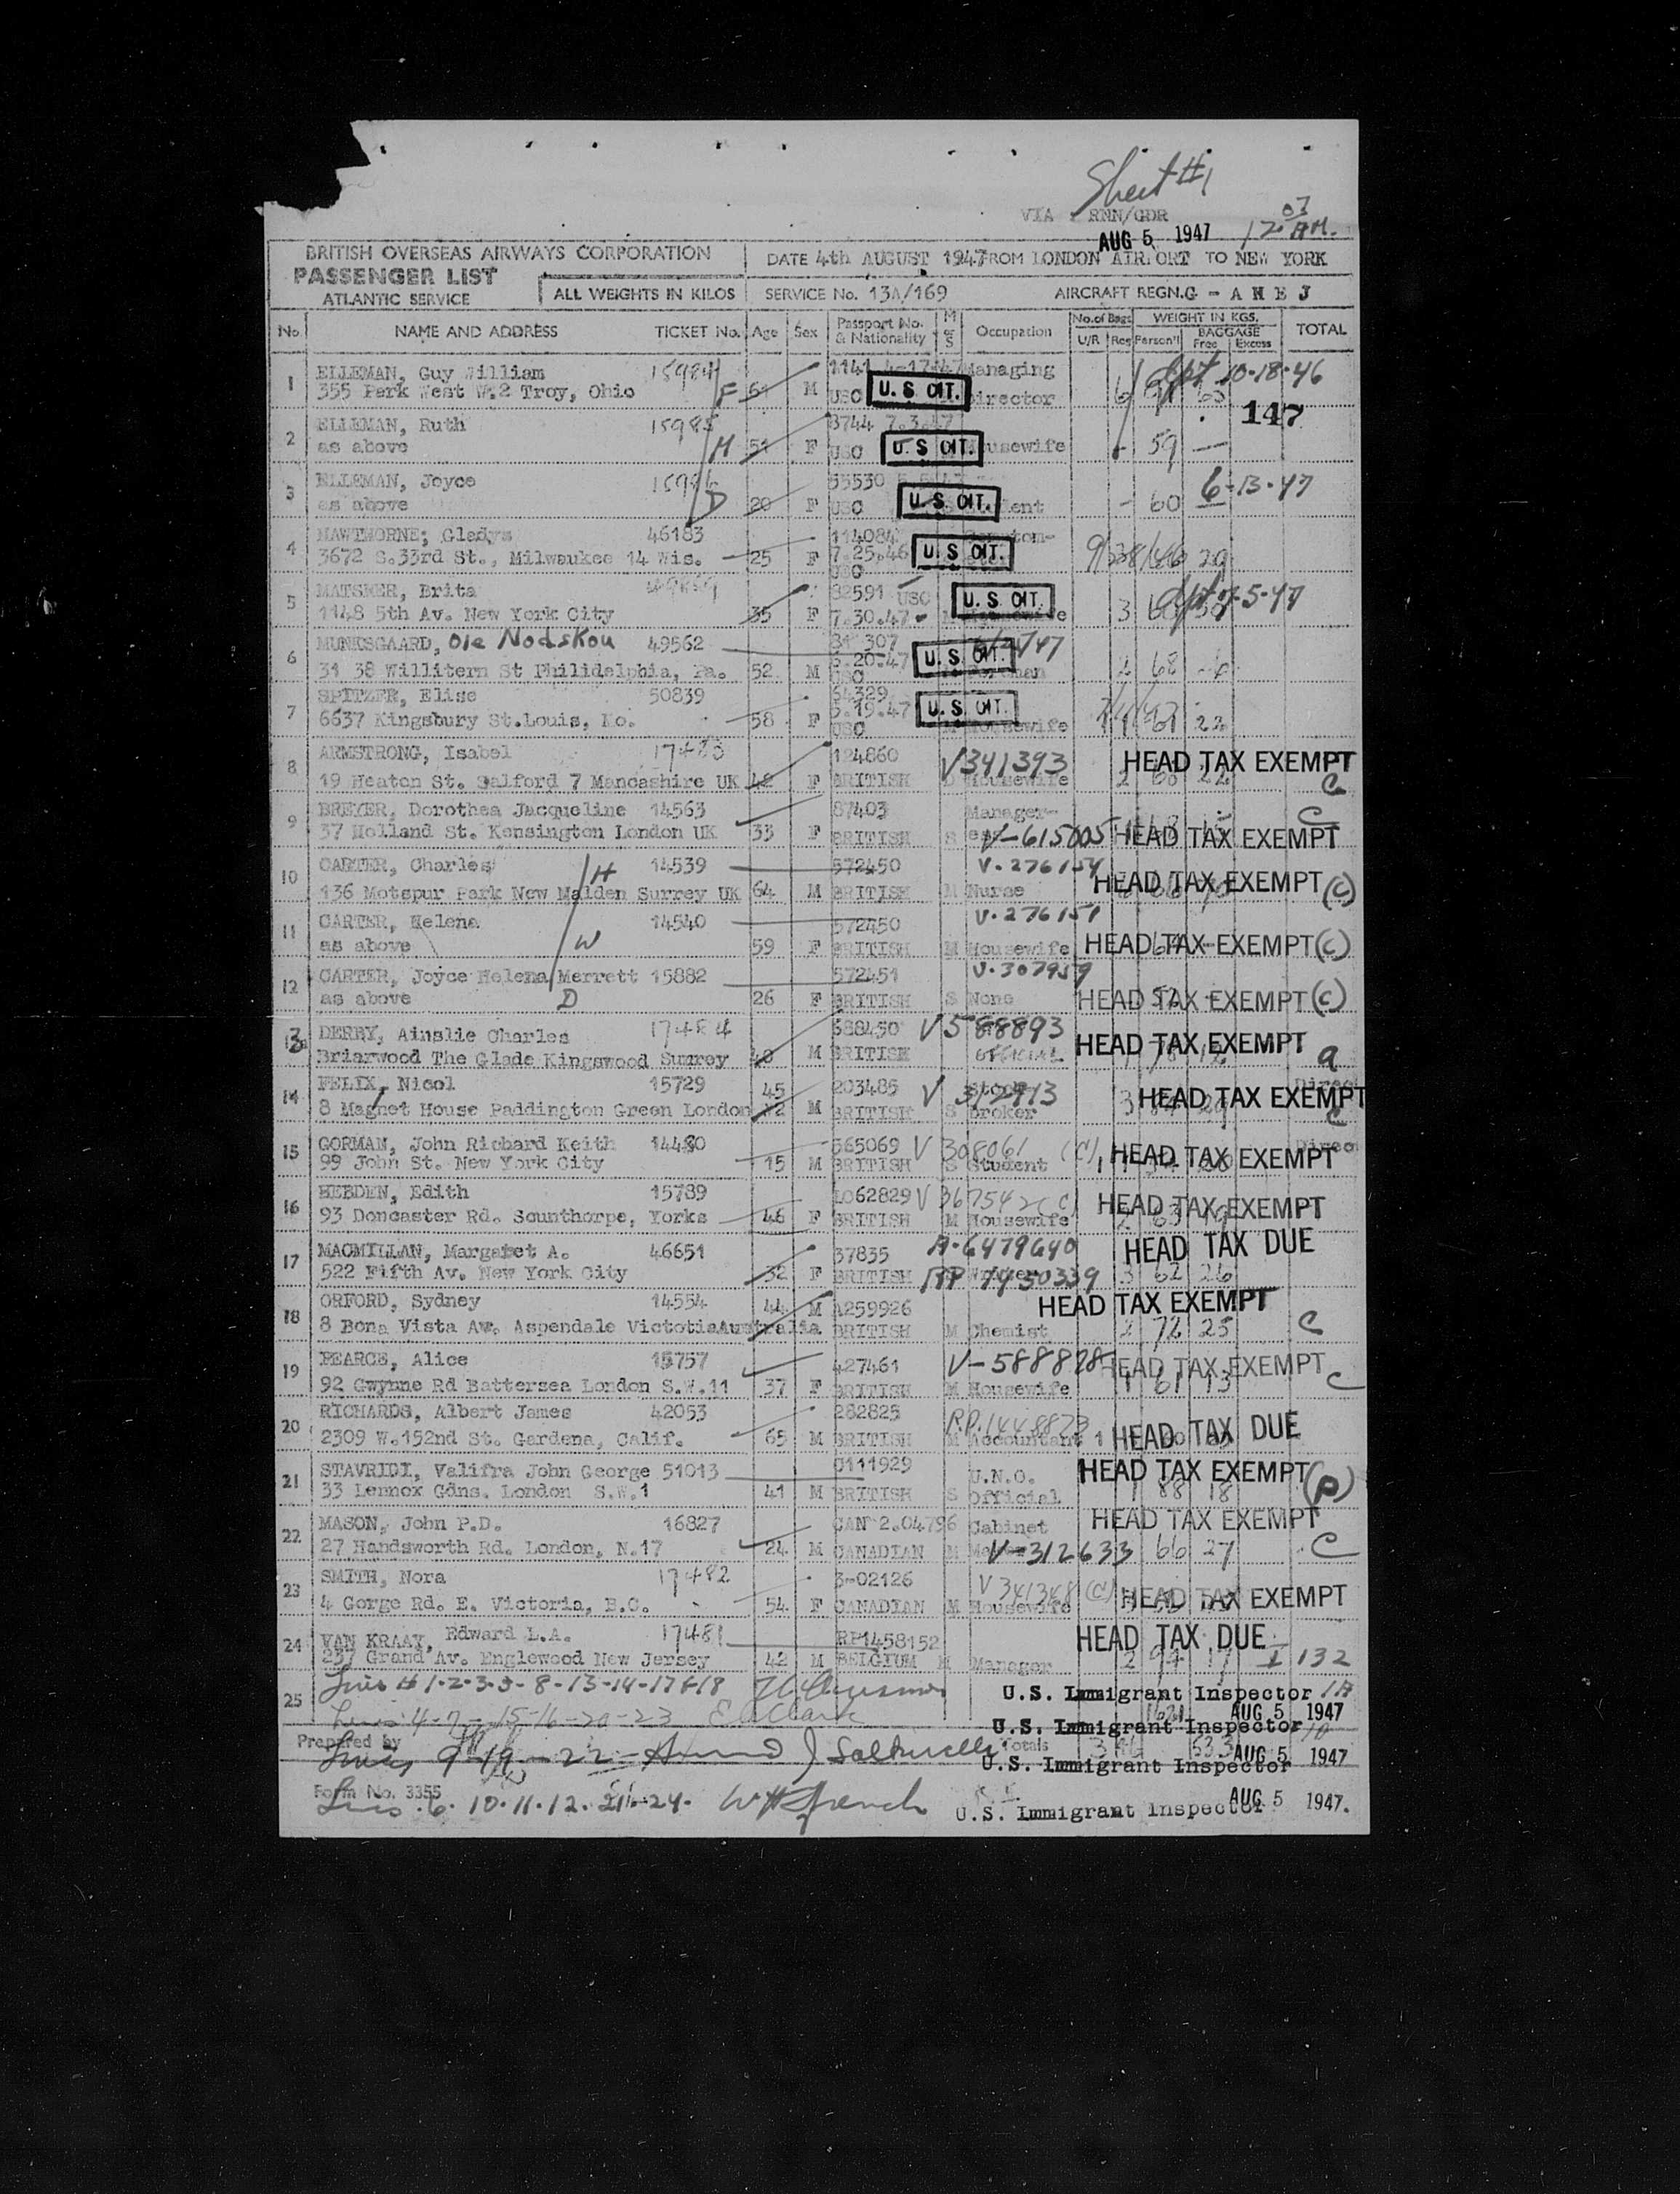 Sheet #1
VIA : RNN/GDR
AUG 5 1947 12 03 AM.
BRITISH OVERSEAS AIRWAYS CORPORATION
PASSENGER LIST
ATLANTIC SERVICE
ALL WEIGHTS IN KILOS
DATE 4th AUGUST 1947 FROM LONDON AIRPORT TO NEW YORK
SERVICE No. 13A/169 AIRCRAFT REGN. G - A H E J
No. NAME AND ADDRESS TICKET No. Age Sex Passport No. & Nationality M or S Occupation No. of Bags U/R Reg WEIGHT IN KGS. Person'l BAGGAGE Free Excess TOTAL
1 ELLEMAN, Guy William 15984 Managing 10-18-46
355 Park West W.2 Troy, Ohio F M USC U.S CIT. Director
147
2 ELLEMAN, Ruth 15985 3744 7.3.47
as above H 51 F USC U.S CIT. Housewife - 59 —
3 ELLEMAN, Joyce 15986 55530 6-13-47
as above D 20 F USC U.S CIT. Student - 60 —
4 HAWTHORNE; Gladys 46183 114084
3672 S.33rd St., Milwaukee 14 Wis. 25 F 7.25.46 U.S CIT. 20
USC
5 MATSNER, Brita 82591 USC U.S CIT. 5-47
1148 5th Av. New York City 35 F 7.30.47 Housewife 3
6 MUNKSGAARD, Ole Nodskou 49562 307
31 38 Willitern St Philidelphia, Pa. 52 M 6.20.47 USC U.S. CIT. 2 68
7 SPITZER, Elise 50839 64329
6637 Kingsbury St.Louis, Mo. 58 F 5.19.47 USC U.S. CIT. Housewife 22
8 ARMSTRONG, Isabel 17483 124860 V341393 HEAD TAX EXEMPT
19 Heaton St. Salford 7 Mancashire UK 42 F BRITISH D Housewife 2 60 22 C
9 BREYER, Dorothea Jacqueline 14563 87403 Manager- C
37 Holland St. Kensington London UK 33 F BRITISH S V-615005 HEAD TAX EXEMPT
10 CARTER, Charles H 14539 572450 V.276154
136 Motspur Park New Malden Surrey UK 64 M BRITISH M Nurse HEAD TAX EXEMPT (C)
11 CARTER, Helena 14540 572450 V.276151
as above W 59 F BRITISH M Housewife HEAD TAX EXEMPT (C)
12 CARTER, Joyce Helena Merrett 15882 572451 V.307959
as above D 26 F BRITISH S None HEAD TAX EXEMPT (C)
13 DERBY, Ainslie Charles 17484 388450 V588893
Briarwood The Glade Kingswood Surrey 40 M BRITISH OFFICIAL HEAD TAX EXEMPT a
14 FELIX, Nicol 15729 45 203485 V 312913 Stock
8 Magnet House Paddington Green London M BRITISH S Broker 3 HEAD TAX EXEMPT C
15 GORMAN, John Richard Keith 14480 565069 V 308061 (C)
99 John St. New York City 15 M BRITISH S Student HEAD TAX EXEMPT
16 HEBDEN, Edith 15789 1062829 V 367542 (C)
93 Doncaster Rd. Scunthorpe, Yorks 46 F BRITISH M Housewife HEAD TAX EXEMPT
17 MACMILLAN, Margaret A. 46651 37835 A-6479640 HEAD TAX DUE
522 Fifth Av. New York City 32 F BRITISH RP 1450339 3 62 26
18 ORFORD, Sydney 14554 44 M A259926 HEAD TAX EXEMPT
8 Bona Vista Av. Aspendale Victotia Australia BRITISH M Chemist 2 72 25 C
19 PEARCE, Alice 15757 427461 V-588828 HEAD TAX EXEMPT
92 Gwynne Rd Battersea London S.W.11 37 F BRITISH M Housewife 1 61 13 C
20 RICHARDS, Albert James 42053 282825 R.P. 1448873
2309 W.152nd St. Gardena, Calif. 65 M BRITISH M Accountant 1 HEAD TAX DUE
21 STAVRIDI, Valifra John George 51013 C111929 U.N.O. HEAD TAX EXEMPT (P)
33 Lennox Gdns. London S.W.1 41 M BRITISH S Official 1 88 18
22 MASON, John P.D. 16827 CAN 2.04796 Cabinet HEAD TAX EXEMPT
27 Handsworth Rd. London, N.17 24 M CANADIAN M V-312633 66 27 C
23 SMITH, Nora 17482 3-02126 V 341348 (C)
4 Gorge Rd. E. Victoria, B.C. 54 F CANADIAN M Housewife HEAD TAX EXEMPT
24 VAN KRAAY, Edward L.A. 17481 RP1458152 HEAD TAX DUE
237 Grand Av. Englewood New Jersey 42 M BELGIUM M Manager 2 94 17 I 132
25 Lines # 1-2-3-5-8-13-14-17+18 U.S. Immigrant Inspector
AUG 5 1947
Lines 4-7-15-16-20-23 E Clark U.S. Immigrant Inspector
Prepared by Totals
Lines 9-19-22 U.S. Immigrant Inspector AUG 5 1947
Form No. 3355
Lines 6. 10.11.12. 21-24. W H French U.S. Immigrant Inspector AUG 5 1947.